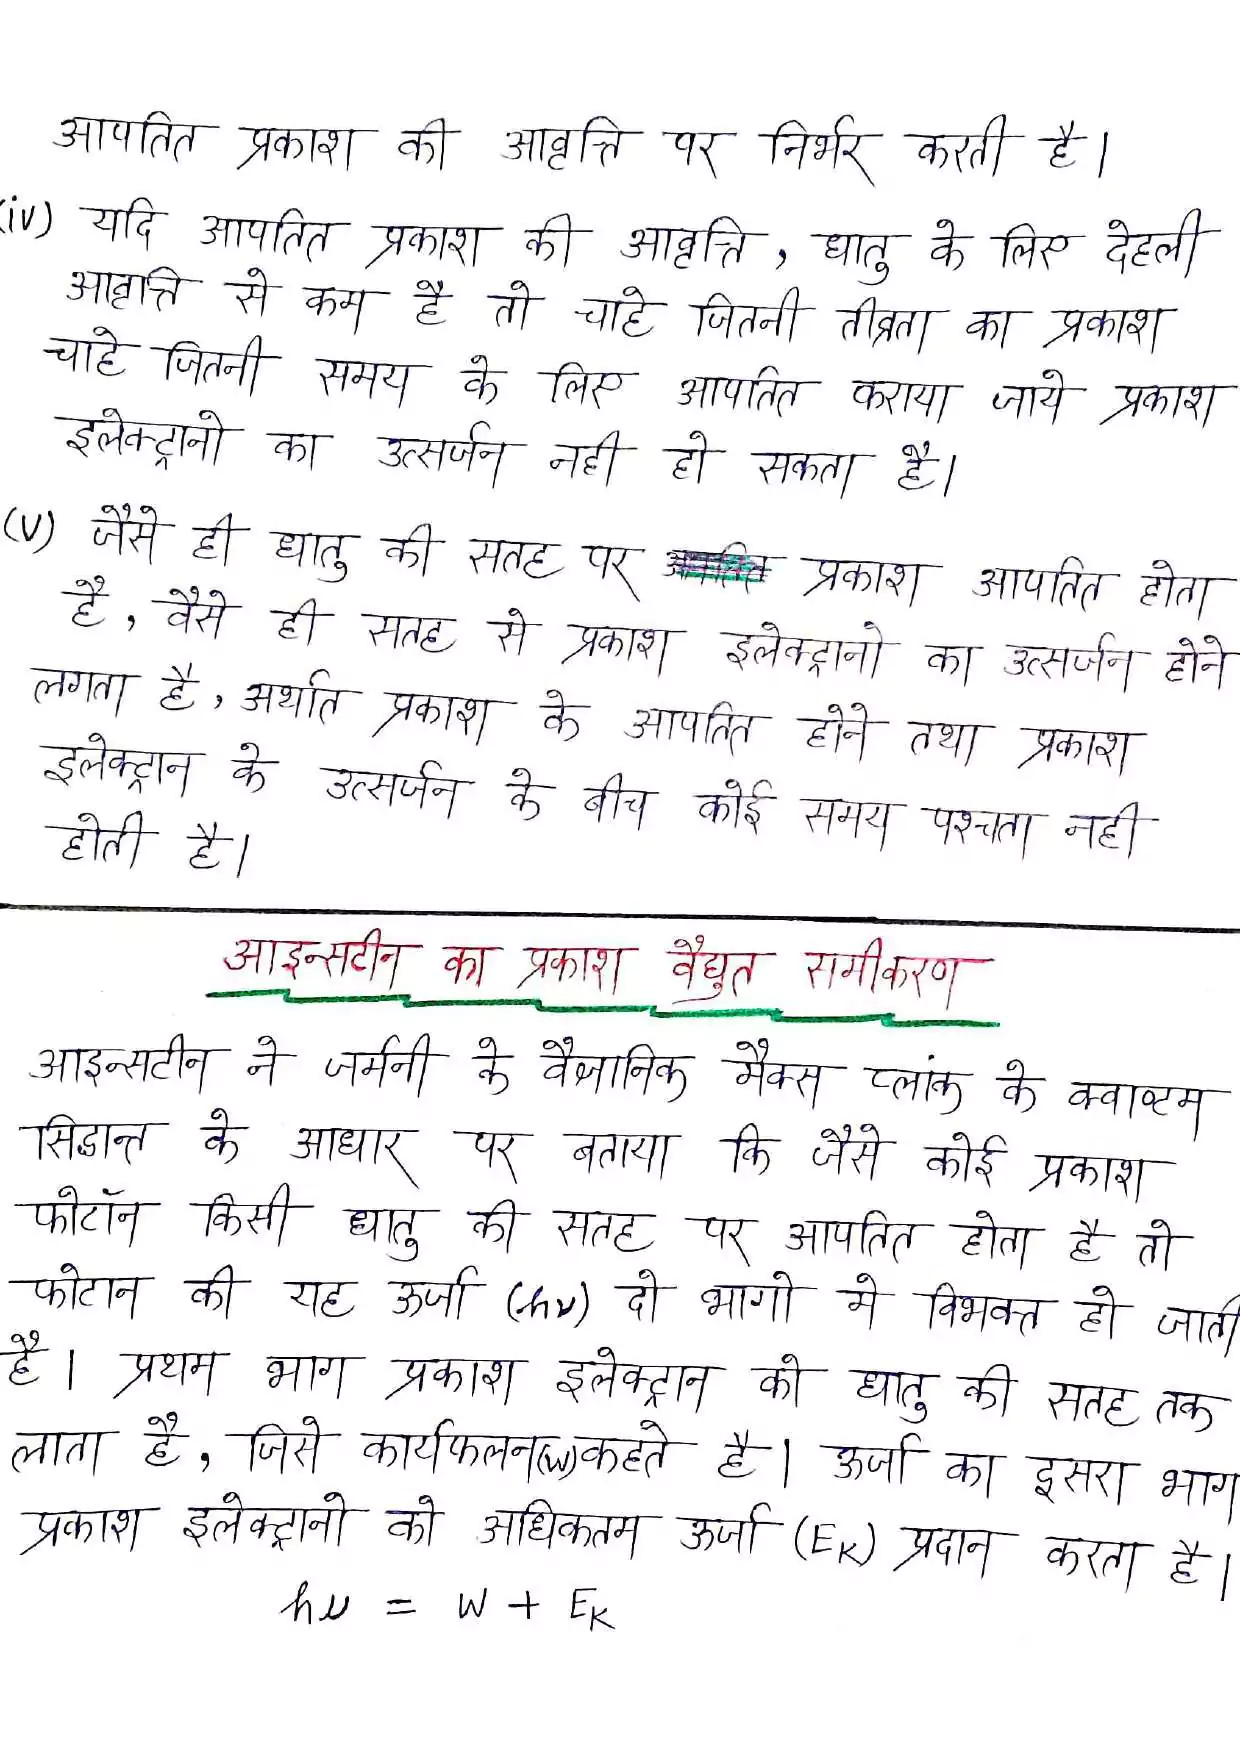 आपतित प्रकाश की आवृत्ति पर निर्भर करती है।
(iv) यदि आपतित प्रकाश की आवृत्ति, धातु के लिए देहली
आवृत्ति से कम है तो चाहे जितनी तीव्रता का प्रकाश
चाहे जितनी समय के लिए आपतित कराया जाये प्रकाश
इलेक्ट्रानो का उत्सर्जन नही हो सकता है।
(v) जैसे ही धातु की सतह पर प्रकाश आपतित होता
है, वैसे ही सतह से प्रकाश इलेक्ट्रानो का उत्सर्जन होने
लगता है, अर्थात प्रकाश के आपतित होने तथा प्रकाश
इलेक्ट्रान के उत्सर्जन के बीच कोई समय पश्चता नही
होती है।
आइन्सटीन का प्रकाश वैद्युत समीकरण
आइन्सटीन ने जर्मनी के वैज्ञानिक मैक्स प्लांक के क्वाण्टम
सिद्धान्त के आधार पर बताया कि जैसे कोई प्रकाश
फोटॉन किसी धातु की सतह पर आपतित होता है तो
फोटान की यह ऊर्जा (hν) दो भागो मे विभक्त हो जाती
है। प्रथम भाग प्रकाश इलेक्ट्रान को धातु की सतह तक
लाता है, जिसे कार्यफलन(W)कहते है। ऊर्जा का दूसरा भाग
प्रकाश इलेक्ट्रानो को अधिकतम ऊर्जा (EK) प्रदान करता है।
hν = W + EK